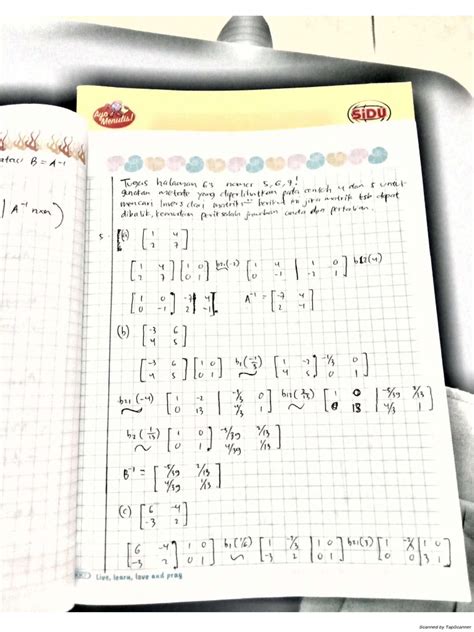 Ayo Menulis!
SiDU
B = A⁻¹
| A⁻¹ nxn )
Tugas halaman 63 nomer 5, 6, 7!
gunakan metode yang diperlihatkan pada contoh 4 dan 5 untuk
mencari invers dari matriks berikut ini jika matrik tsb dapat
dibalik, kemudian periksalah jawaban anda dgn perkalian.
5. (a) [1 4
2 7]
[1 4 | 1 0
2 7 | 0 1] b21(-2) [1 4 | 1 0
0 -1 | -2 1] b12(4)
[1 0 | -7 4
0 -1 | 2 -1] A⁻¹ = [-7 4
2 -1]
(b) [-3 6
4 5]
[-3 6 | 1 0
4 5 | 0 1] b1(-1/3) [1 -2 | -1/3 0
4 5 | 0 1]
b21(-4) [1 -2 | -1/3 0
0 13 | 4/3 1] b12(2/13) [1 0 | -5/39 2/13
0 13 | 4/3 1]
b2(1/13) [1 0 | -5/39 2/13
0 1 | 4/39 1/13]
B⁻¹ = [-5/39 2/13
4/39 1/13]
(c) [6 -4
-3 2]
[6 -4 | 1 0
-3 2 | 0 1] b1(1/6) [1 -2/3 | 1 0
-3 2 | 0 1] b21(3) [1 -2/3 | 1 0
0 0 | 3 1]
Live, learn, love and pray
Scanned by TapScanner